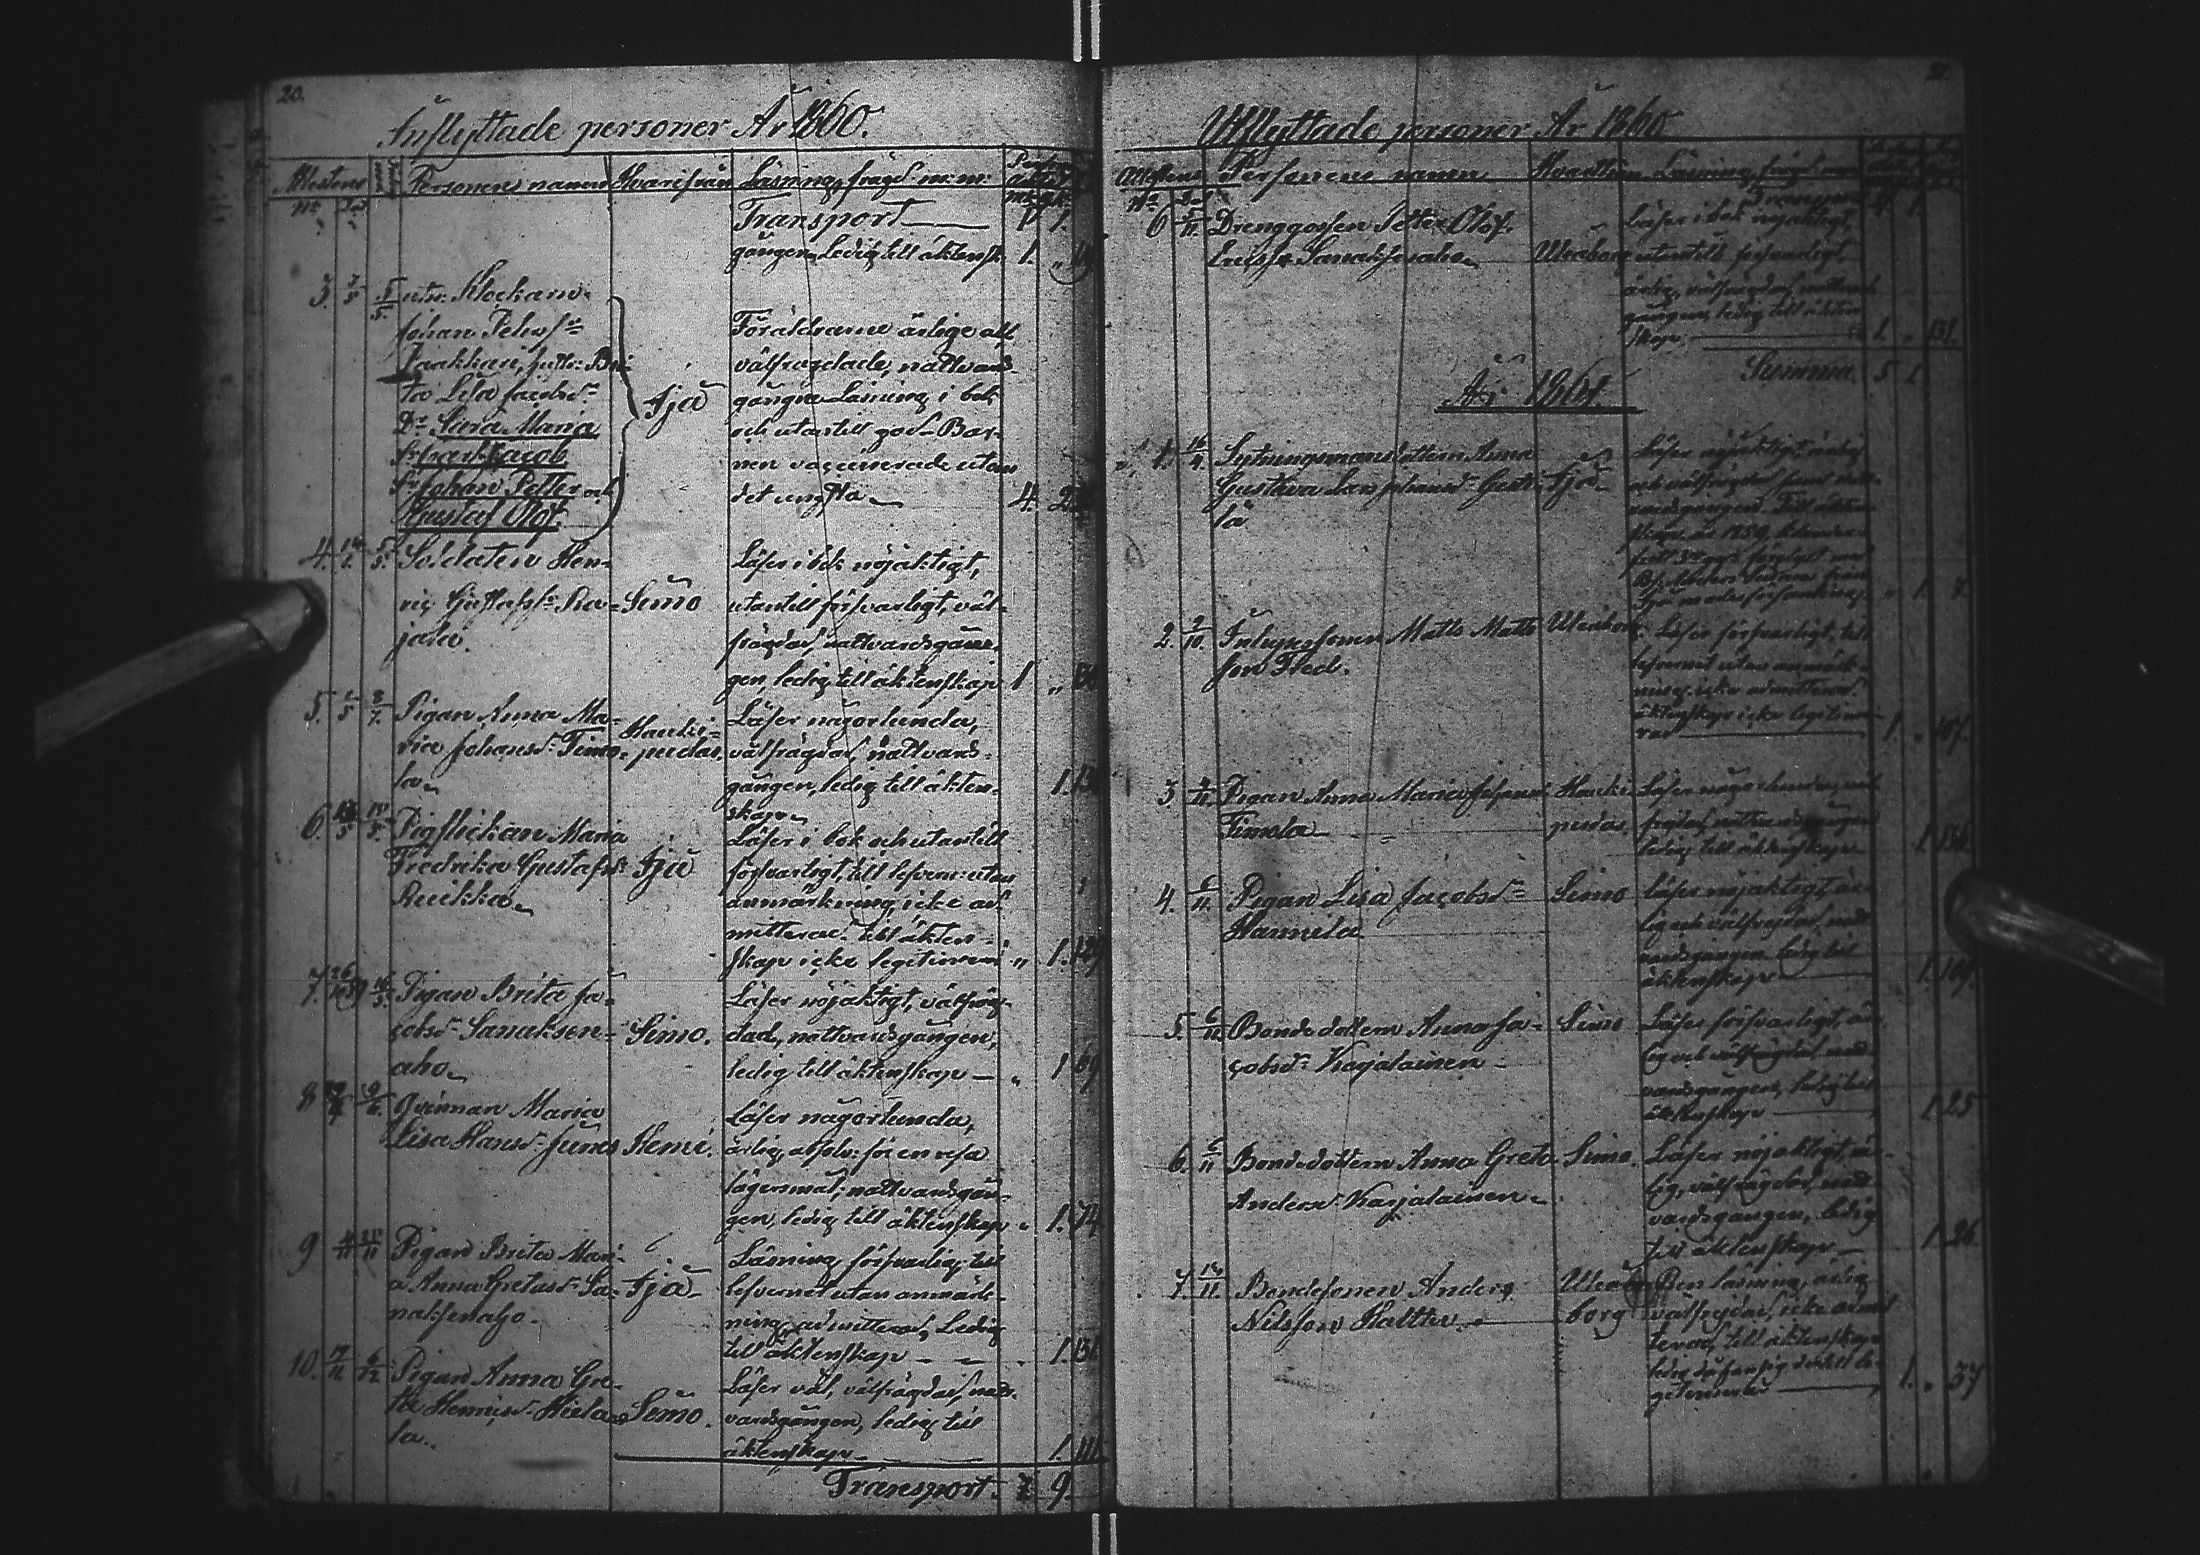 20.
Inflyttade personer År 1860.
Attestens Personens namn Hvarifrån Läsning, frägd m: m:
No
Transport 1. 1.
gången, Ledig till äktensk. 1. „
3. 3/5 5/5 Klockaren
Johan Pehrs
Britta Lisa Jacobsdr
Dr Sara Maria
Jacob
Sr Johan Petter och
Gustaf Olof
Ijå
Föräldrarne ärlige och
välfrägdade, nattvards-
gångne Läsning i bok
och utantill god. Bar-
nen vaccinerade utom
det yngsta 4. 2.
4. Soldaten Hen-
ric Gustafss. Ra-
jala.
Simo
Läser i bok nöjaktigt,
utantill försvarligt, väl-
frägdad, nattvardsgån-
gen, ledig till äktenskap 1 „
5. Pigan Anna Ma-
ria Johansdr Timo-
la
Hauki-
pudas.
Läser någorlunda,
välfrägdad, nattvards-
gången, ledig till äkten-
skap 1.
6. Pigflickan Maria
Fredrika Gustafsdr
Ruikka
Ijå
Läser i bok och utantill
försvarligt, till lefverne utan
anmärkning, icke ad-
mitterad. till äkten-
skap icke legitimerad „ 1. 129
7. Pigan Brita Ja-
cobsdr Sanaksen-
aho
Simo.
Läser nöjaktigt, välfräg-
dad, nattvardsgången,
ledig till äktenskap „ 1 69
8. Qvinnan Maria
Lisa Hansdr Junes
Kemi.
Läser någorlunda,
ärlig, absolv: för en resa
lägersmål, nattvardsgån-
gen, ledig till äktenskap „ 1. 74
9 Pigan Brita Mari-
a Anna Gretasdr Sa-
naksenaho.
Ijå
Läsning försvarlig till
lefvernet utan anmärk-
ning, admitterad, Ledig
till äktenskap 1. 131
10. Pigan Anna Gre-
ta Henricsdr Hieta-
la.
Simo.
Läser väl, välfrägdad, natt-
vardsgången, ledig till
äktenskap 1. 111
Transport. 7. 9.
21.
Utflyttade personer År 1860
Attestens Personens namn Hvarthän Läsning, frägd m: m:
No
Transport 4 1.
6 Drenggossen Petter Olof
Sanaksenaho
Uleåborg
Läser i bok nöjaktigt,
utantill försvarligt
ärlig, välfrägdad, nattvards-
gången, ledig till äkten-
skap 1. „ 131.
Summa. 5 1.
År 1861.
1. 16/4 Sytningsmansdottern Anna
Gustava
la
Ijå
Läser nöjaktigt, ärlig
och välfrägdad samt natt-
vardsgången. Till äkten-
skap år 1859
„ 1. 7.
2. 2/10 Matts Matts-
son
Uleåborg
Läser försvarligt, till
lefvernet utan anmärk-
ning icke admitterad.
äktenskap icke legitime-
rad 1. „ 107.
3. Pigan Anna Maria Johansdr
Timola
Hauki-
pudas
Läser någorlunda, väl-
frägdad, nattvardsgången
ledig till äktenskap 1. 136
4. 6/11. Pigan Lisa Jacobsdr
Hannila
Simo
Läser nöjaktigt, är-
lig och välfrägdad, natt-
vardsgången ledig till
äktenskap 1. 109.
5. 6/11 Bondedottern Anna Ja-
cobsdr Karjalainen
Simo
Läser försvarligt, är-
lig och välfrägdad natt-
vardsgången, ledig till
äktenskap 1 25
6. Bondedottern Anna Greta
Andersdr Karjalainen
Simo.
Läser nöjaktigt, är-
lig, välfrägdad, natt-
vardsgången, ledig
till äktenskap 1. 26.
7. 14/11. Bondesonen Anders
Nilsson
Uleå-
borg
Ren läsning, ärlig
välfrägdad, icke admit-
terad, till äktenskap
1. „ 37